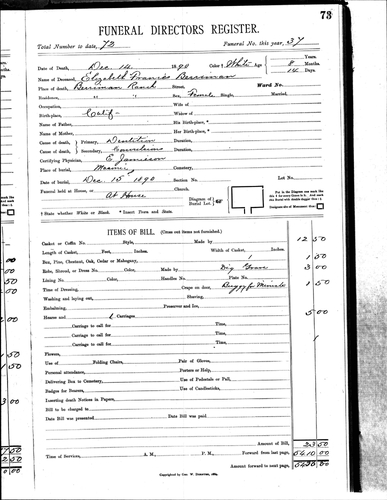 73
FUNERAL DIRECTORS REGISTER.
Total Number to date, 73 Funeral No. this year, 37
Date of Death, Dec. 14. 1890 Color † White Age Years.
8 Months.
14 Days.
Name of Deceased, Elizabeth Francis Berriman
Place of death, Berriman Ranch Street, Ward No.
Residence, " " Sex, Female Single, Married,
Occupation, Wife of
Birth-place, Calif- Widow of
Name of Father, His Birth-place, *
Name of Mother, Her Birth-place, *
Cause of Death, Primary, Dentition Duration,
Cause of Death, Secondary, Convulsions Duration,
Certifying Physician, E. Jamison
Place of burial, Masonic Cemetery,
Date of burial, Dec. 15th 1890 Section No. Lot No.
Funeral held at House, or At House Church,
Diagram of Burial Lot.
Put in the Diagram used the like
† State whether White or Black. * Insert Town and State.
ITEMS OF BILL. (Cross out items not furnished.)
Casket or Coffin No. Style, Made by 12 50
Length of Casket, Feet, Inches. Width of Casket, Inches.
Box, Pine, Chestnut, Oak, Cedar or Mahogany, 1 50
Robe, Shroud, or Dress No. Color, Made by Dig Grave 3 00
Lining No. Color, Handles No. Plate No.
Time of Dressing, Crape on door, Buggy for Minister 1 50
Washing and laying out, Shaving,
Embalming, Preserver and Ice,
Hearse and 1 Carriages 5 00
Carriages to call for Time,
Carriages to call for Time,
Carriages to call for Time,
Carriages to call for Time,
Flowers,
Use of Folding Chairs, Pair of Gloves,
Personal attendance, Porters or Help,
Delivering Box to Cemetery, Use of Pedestals or Pall,
Badges for Bearers, Use of Candlesticks,
Inserting death Notices in Papers,
Bill to be charged to
Date Bill was presented Date Bill was paid
Amount of Bill, 23 50
Time of Services, A. M., P. M., Forward from last page, 5410 00
Amount forward to next page,